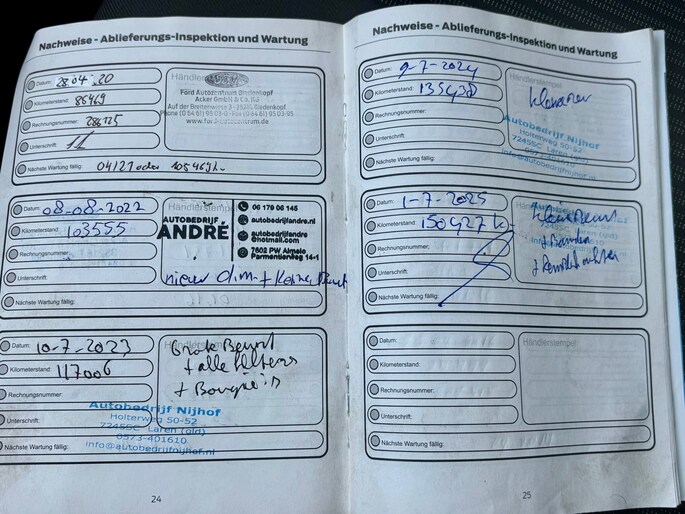 Nachweise - Ablieferungs-Inspektion und Wartung
Datum: 28.04.20
Kilometerstand: 86469
Rechnungsnummer: 286725
Unterschrift:
Nächste Wartung fällig: 04/21 oder
Händlerstempel
Ford Autozentrum Biedenkopf
Acker GmbH & Co. KG
Auf der Breitenwiese 3 - 35216 Biedenkopf
www.ford-autozentrum.de
Datum: 08-08-2022
Kilometerstand: 103555
Rechnungsnummer:
Unterschrift
Nächste Wartung fällig:
Händlerstempel
AUTOBEDRIJF
ANDRÉ
06 179 06 145
autobedrijfandre.nl
autobedrijfandre
@hotmail.com
7602 PW Almelo
Parmentierweg 14-1
nieuw dim +
Datum: 10-7-2023
Kilometerstand: 117006
Rechnungsnummer:
Unterschrift
Nächste Wartung fällig:
Händlerstempel
Grote Beurt
+ alle filters
+ Bougie's
Autobedrijf Nijhof
Holterweg 50-52
7245SC Laren (gld)
0573-401610
info@autobedrijfnijhof.nl
24
Nachweise - Ablieferungs-Inspektion und Wartung
Datum: 9-7-2024
Kilometerstand: 135438
Rechnungsnummer:
Unterschrift:
Nächste Wartung fällig:
Händlerstempel
Autobedrijf Nijhof
Holterweg 50-52
7245SC Laren (gld)
0573-401610
info@autobedrijfnijhof.nl
Datum: 1-7-2025
Kilometerstand: 150427 k
Rechnungsnummer:
Unterschrift
Nächste Wartung fällig:
+ Banden
Datum:
Kilometerstand:
Rechnungsnummer:
Unterschrift:
Nächste Wartung fällig:
Händlerstempel
25